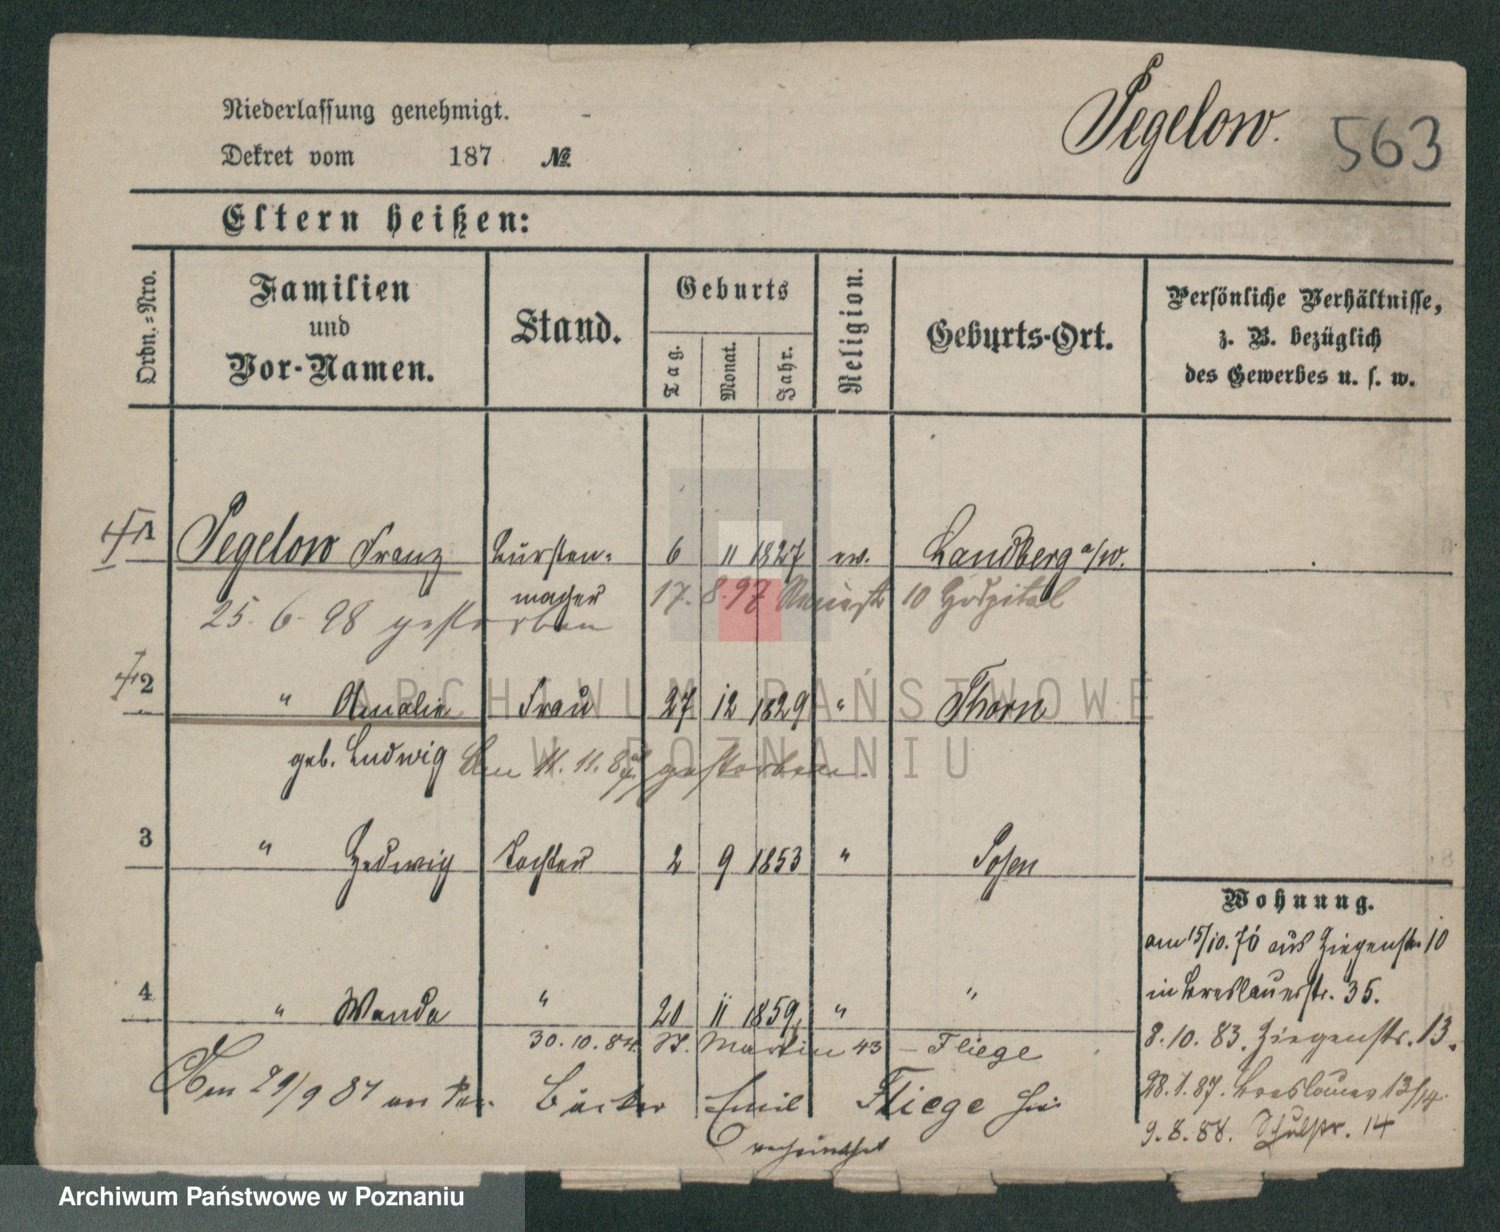 Niederlassung genehmigt. -
Dekret vom 187 №
Pegelow. 563
Eltern heißen:
Ordn.-Nro.
Familien und Vor-Namen.
Stand.
Geburts
Tag. Monat. Jahr.
Religion.
Geburts-Ort.
Persönliche Verhältnisse,
z. B. bezüglich
des Gewerbes u. s. w.
1 Pegelow Franz Bürsten- 6 11 1827 ev. Landberg a/W.
macher 17. 8. 97 10 Hospital
25. 6. 98 gestorben
2 " Amalie Frau 27 12 1829 " Thorn
geb. Ludwig Am 11. 11. gestorben.
3 " Hedwig Tochter 2 9 1853 " Posen
4 " Wanda " 20 11 1859 " "
30. 10. 84 St. Martin 43 - Fliege
Am 29/9 81 an den Bäcker Emil Fliege hier
verheirathet
Wohnung.
am 15/10. 76 aus Ziegenstr. 10
in Breslauerstr. 35.
8. 10. 83. Ziegenstr. 13.
28. 1. 87. Breslauer 13/14.
9. 8. 88. Schulstr. 14
ARCHIWUM PAŃSTWOWE
W POZNANIU
Archiwum Państwowe w Poznaniu